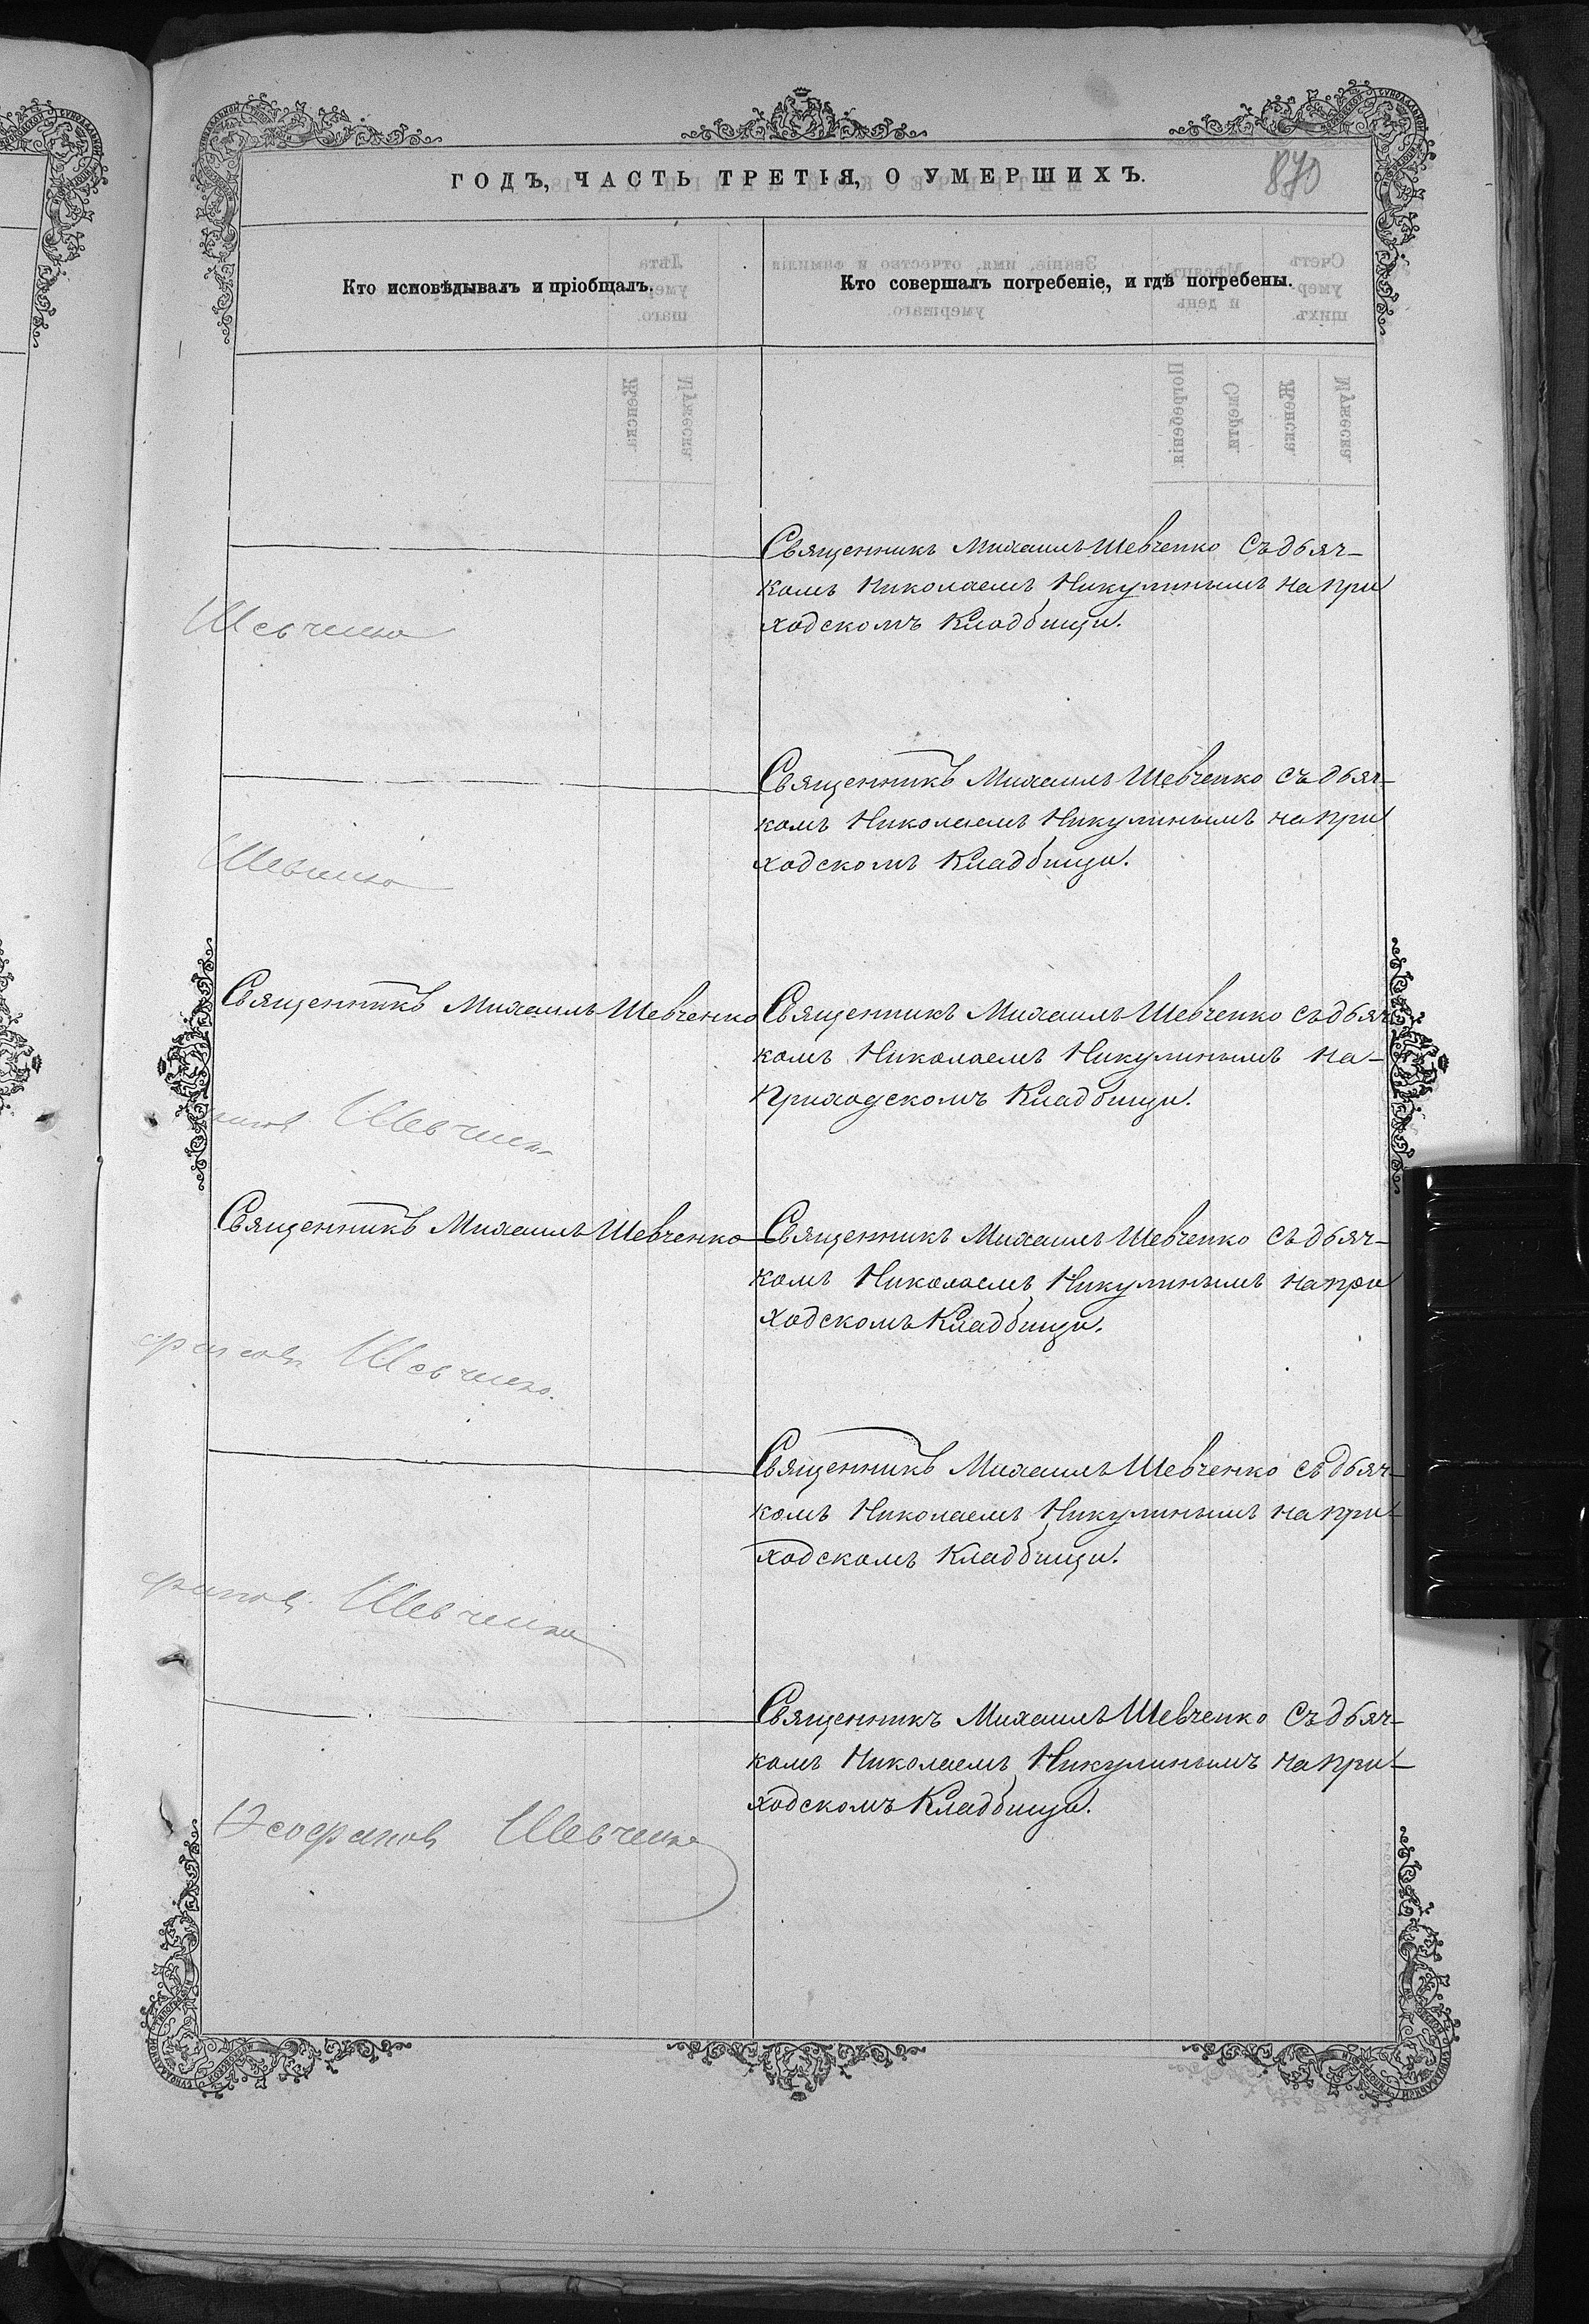 ГОДЪ, ЧАСТЬ ТРЕТІЯ, О УМЕРШИХЪ.
870
Кто исповѣдывалъ и пріобщалъ.
Кто совершалъ погребеніе, и гдѣ погребены.
Священникъ Михаилъ Шевченко съ дьяч-
комъ Николаемъ Никулинымъ на при
ходскомъ Кладбищи.
Шевченко
Священникъ Михаилъ Шевченко съ дьяч-
комъ Николаемъ Никулинымъ на при
ходскомъ Кладбищи.
Шевченко
Священникъ Михаилъ Шевченко
Священникъ Михаилъ Шевченко съ дьяч
комъ Николаемъ Никулинымъ на-
Приходскомъ Кладбищи.
Шевченко
Священникъ Михаилъ Шевченко
Священникъ Михаилъ Шевченко съ дьяч-
комъ Николаемъ Никулинымъ на при
ходскомъ Кладбищи.
Шевченко.
Священникъ Михаилъ Шевченко съ дьяч-
комъ Николаемъ Никулинымъ на при-
ходскомъ Кладбищи.
Шевченко
Священникъ Михаилъ Шевченко Съ дьяч-
комъ Николаемъ Никулинымъ на при-
ходскомъ Кладбищи.
Шевченко